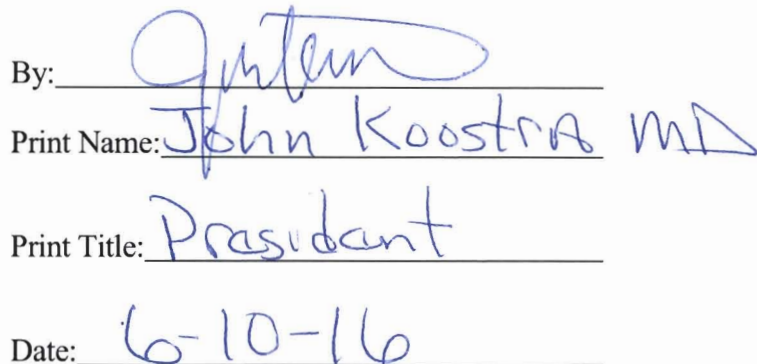 By:
Print Name: John Koostra MD
Print Title: President
Date: 6-10-16